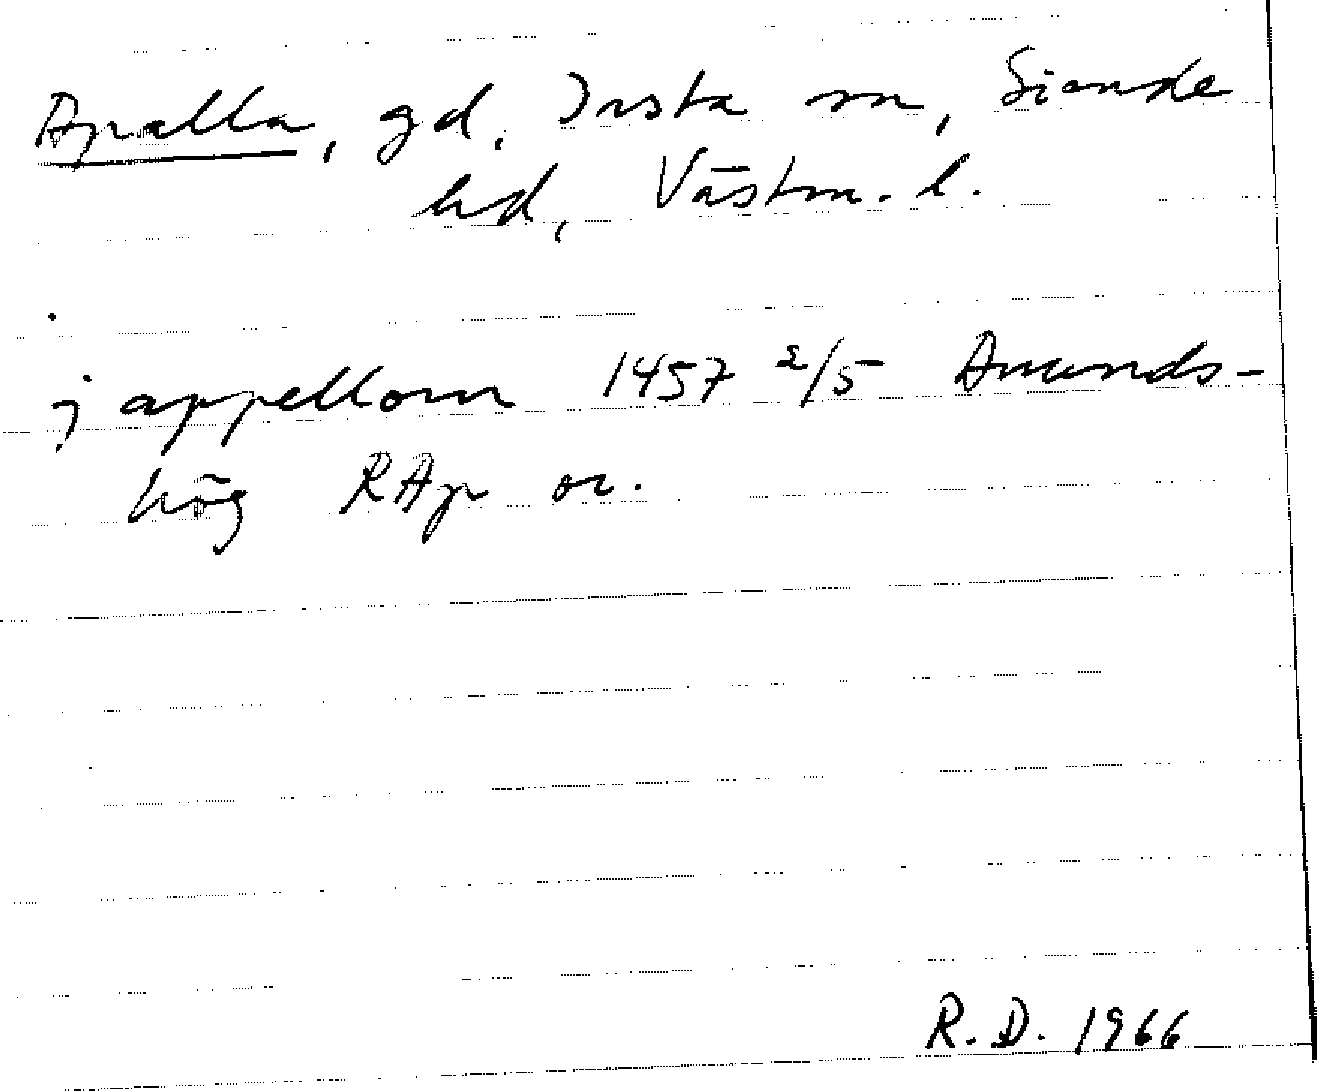 Apalla, gd, Irsta sn, Siende
hd, Västm. l.
j appellom 1457 2/5 Anunds-
hög RAp or.
R.D. 1966